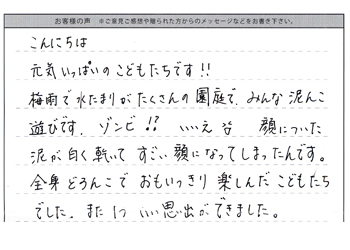 お客様の声 ※ご意見ご感想や贈られた方からのメッセージなどをお書き下さい。
こんにちは
元気いっぱいのこどもたちです!!
梅雨で水たまりがたくさんの園庭で、みんな泥んこ
遊びです。ゾンビ!? いいえ 顔についた
泥が白く乾いて すごい顔になってしまったんです。
全身どろんこで おもいっきり 楽しんだ こどもたち
でした。また1つ いい思出ができました。